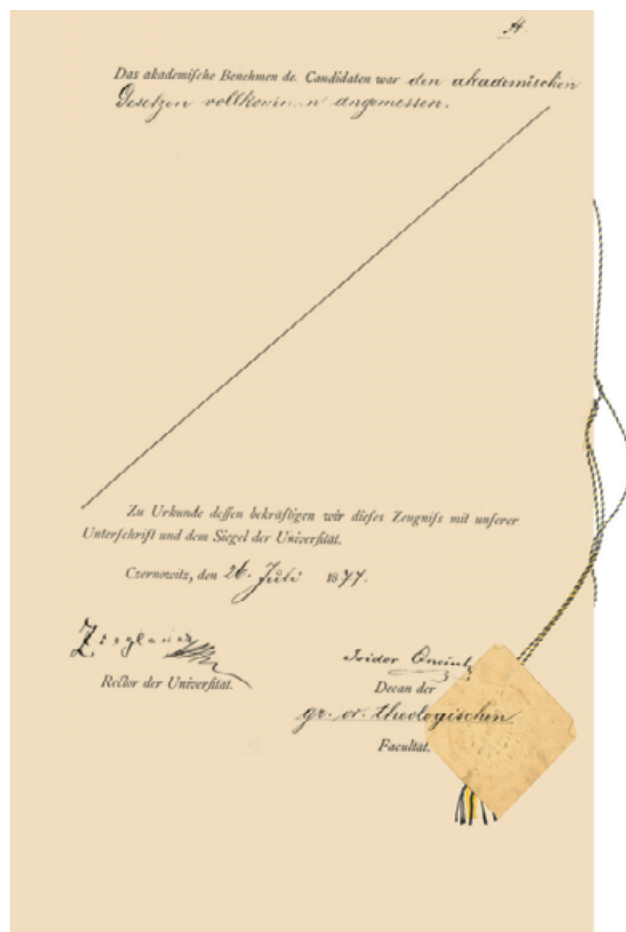 Das akademische Benehmen de. Candidaten war den akademischen
Gesetzen vollkommen angemessen.
Zu Urkunde dessen bekräftigen wir dieses Zeugniss mit unserer
Unterschrift und dem Siegel der Universität.
Czernowitz, den 26. Juli 1877.
Isidor
Rector der Universität.
Decan der
gr. or. theologischen
Facultät.